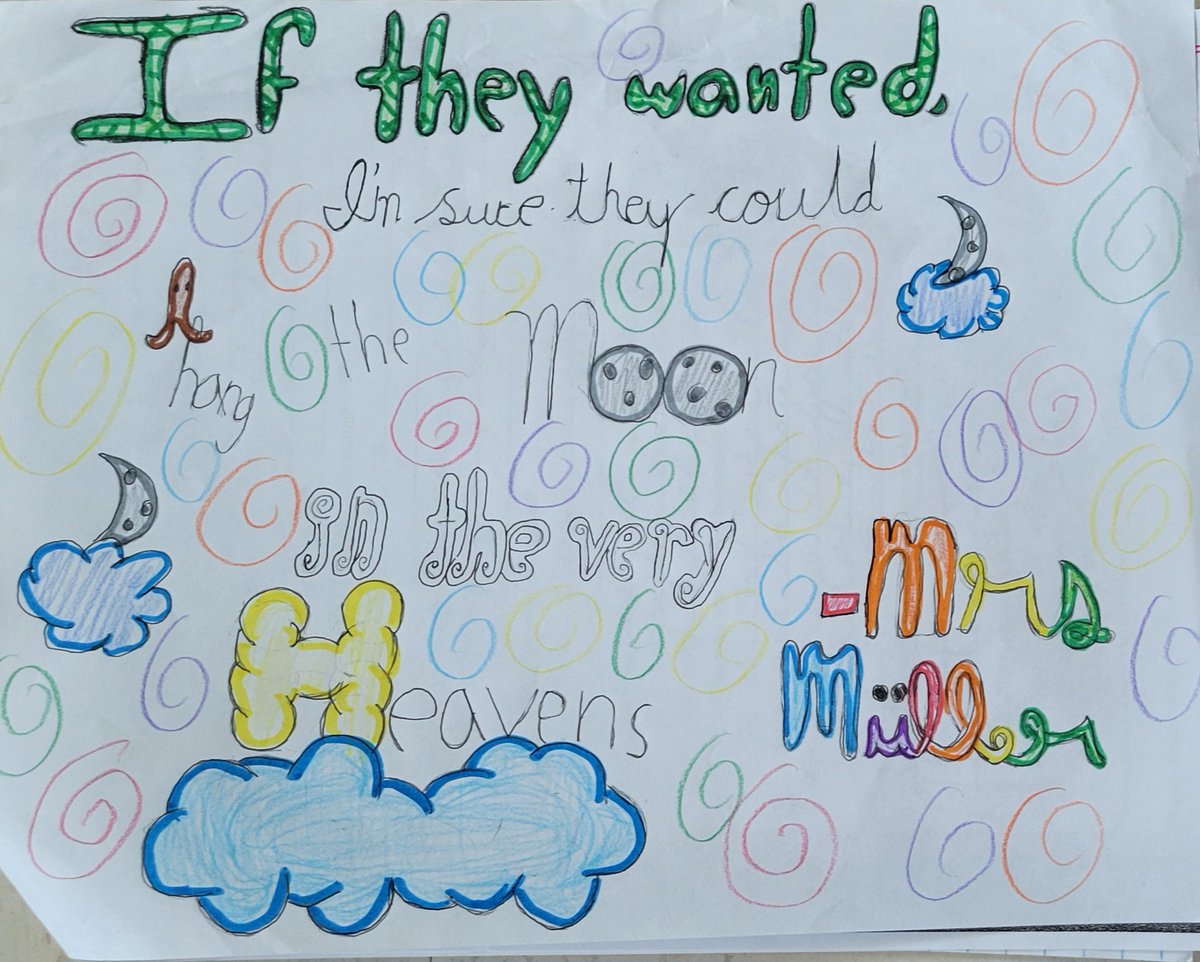 If they wanted,
I'm sure they could
hang the Moon
in the very
Heavens
-Mrs
Müller